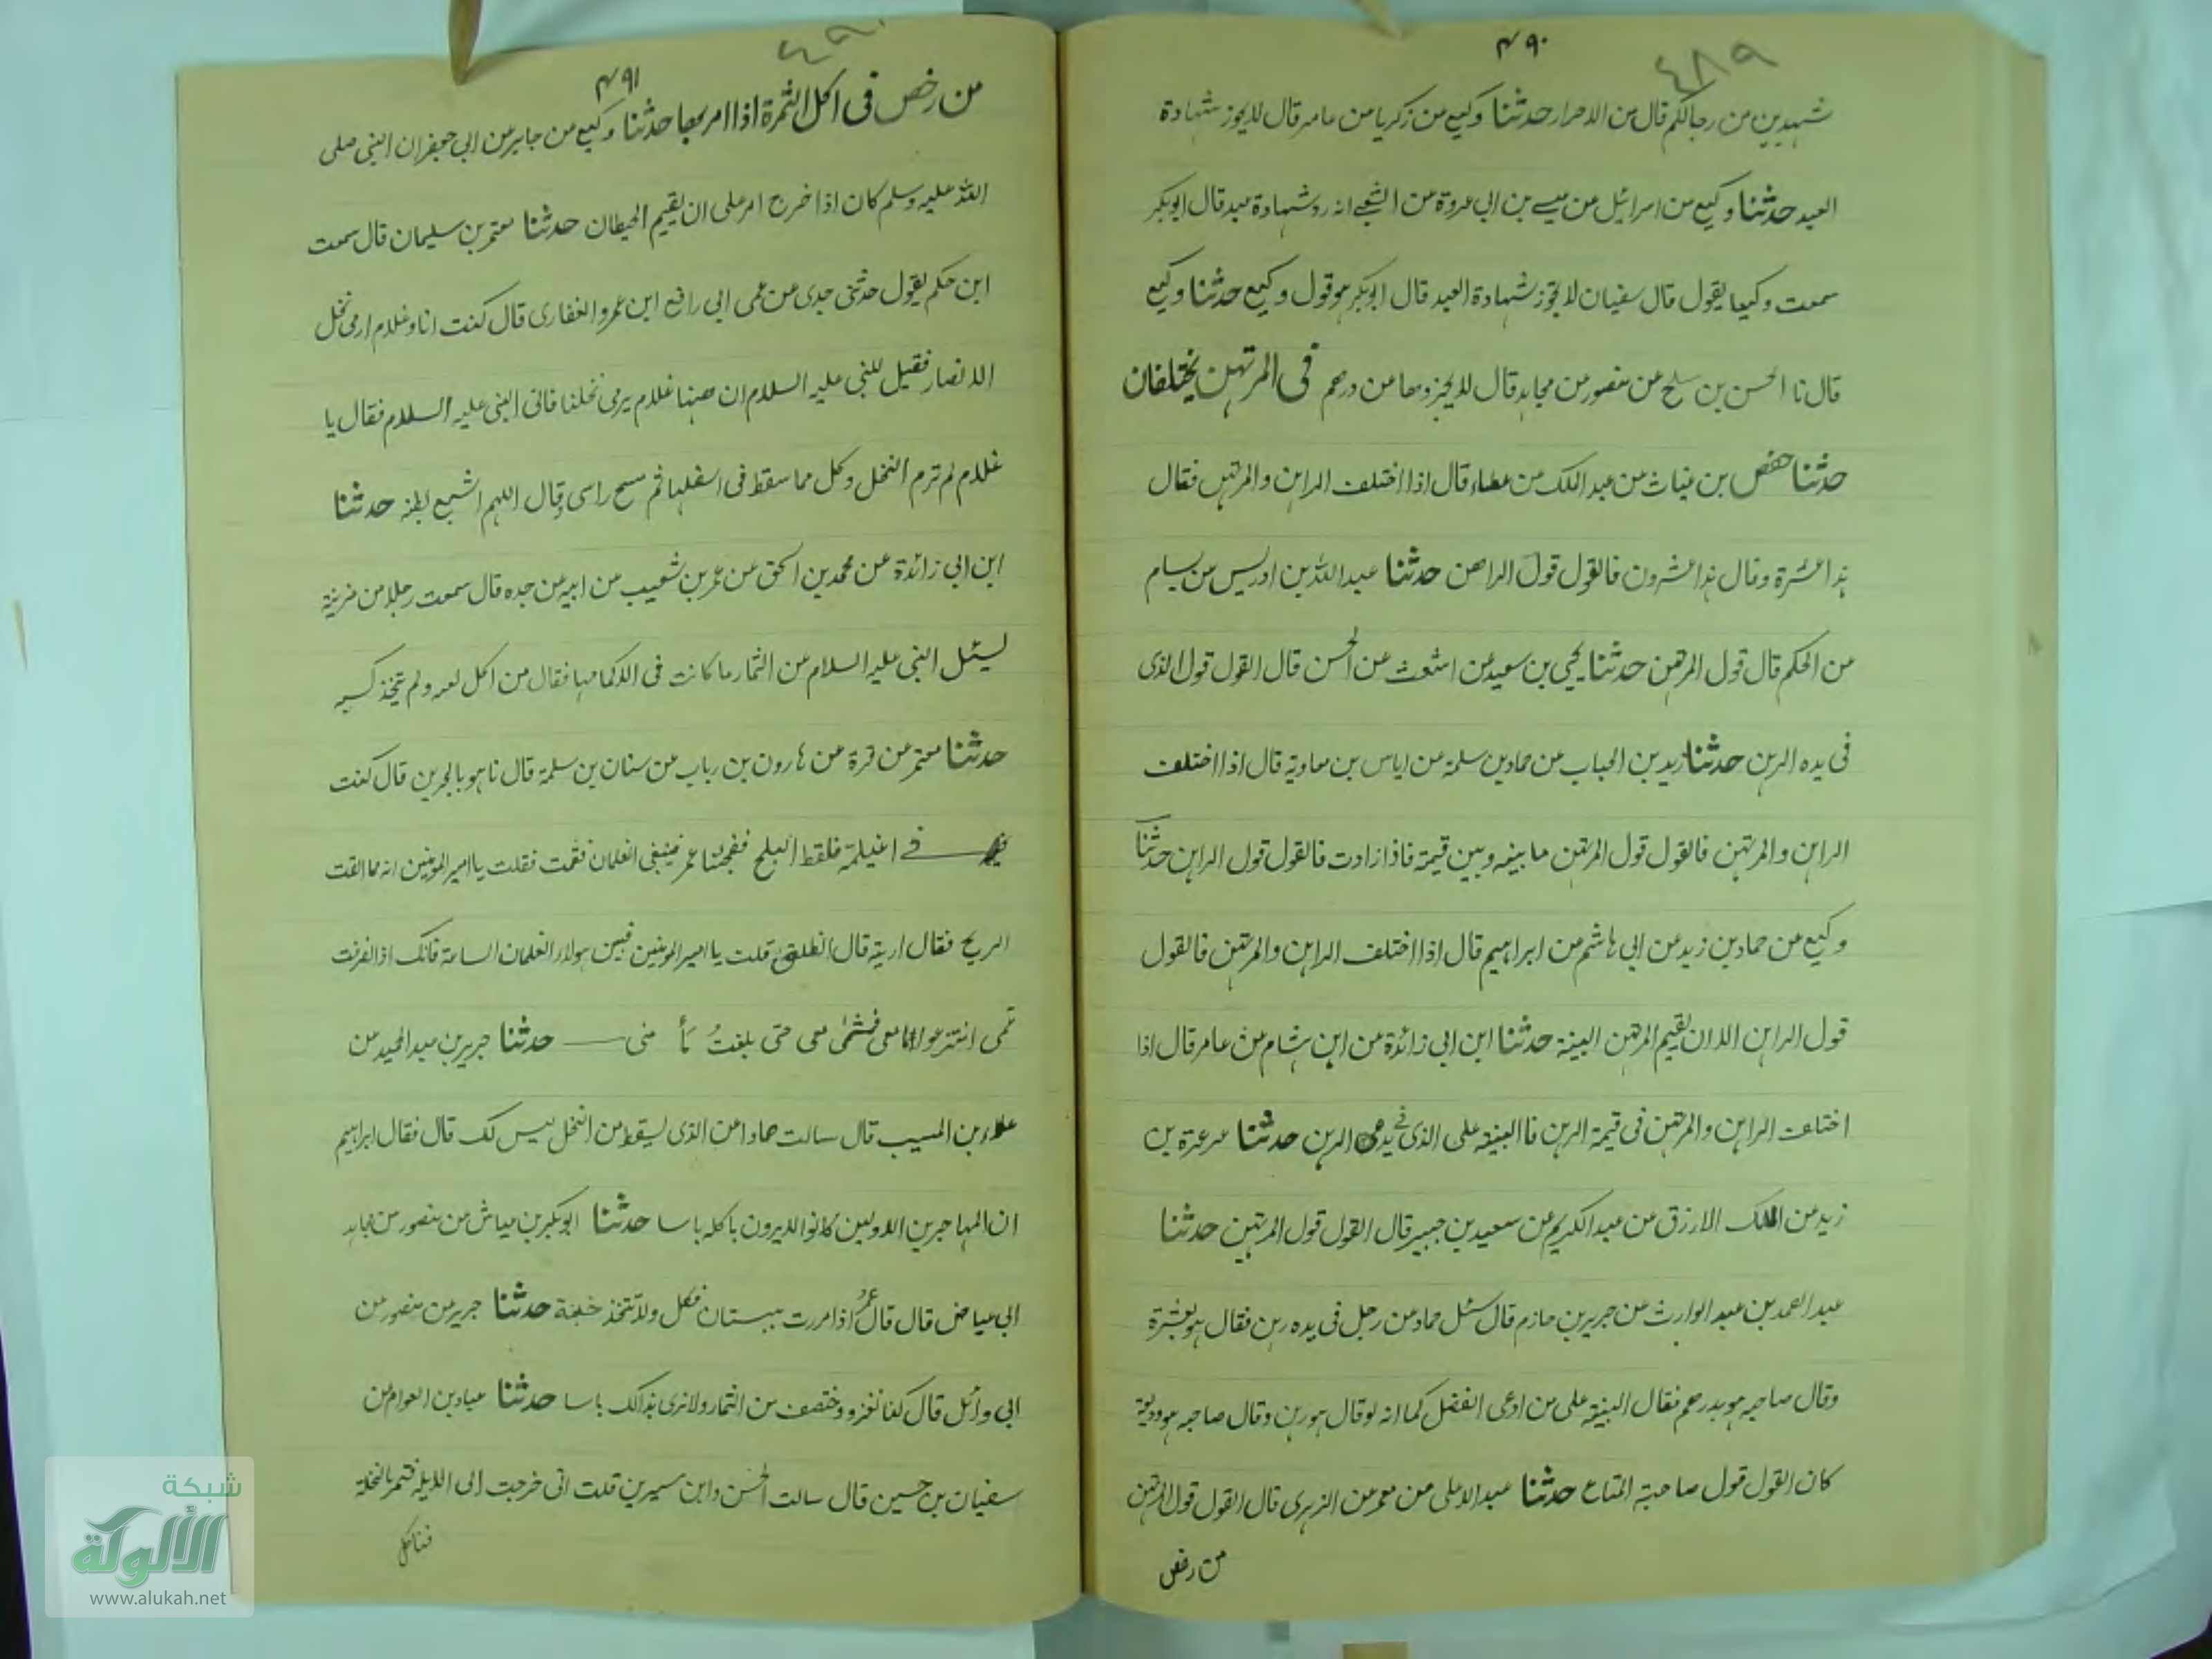 ٤٨٩
٤٩٠
شهيدين من رجالكم قال من الاحرار حدثنا وكيع عن زكريا عن عامر قال لا يجوز شهادة
العبد حدثنا وكيع عن اسرائيل عن عيسى بن ابي عروة عن الشعبي انه رد شهادة عبد قال ابوبكر
سمعت وكيعا يقول قال سفيان لا تجوز شهادة العبد قال ابوبكر هو قول وكيع حدثنا وكيع
قال نا الحسن بن صلح عن منصور عن مجاهد قال لا يجز وها من درهم في المرتهن يختلفان
حدثنا حفص بن غياث عن عبد الملك عن عطاء قال اذا اختلف الراهن والمرتهن فقال
هذا عشرة وقال هذا عشرون فالقول قول الراهن حدثنا عبد الله بن ادريس عن هشام
عن الحكم قال قول المرتهن حدثنا يحيى بن سعيد عن اشعث عن الحسن قال القول قول الذى
فى يده الرهن حدثنا زيد بن الحباب عن حماد بن سلمة عن اياس بن معاوية قال اذا اختلف
الراهن والمرتهن فالقول قول المرتهن ما بينه وبين قيمته فاذا زادت فالقول قول الراهن حدثنا
وكيع عن حماد بن زيد عن ابى هاشم عن ابراهيم قال اذا اختلف الراهن والمرتهن فالقول
قول الراهن الا ان يقيم المرتهن البينة حدثنا ابن ابى زائدة عن ابن هشام عن عامر قال اذا
اختلف الراهن والمرتهن فى قيمة الرهن فاالبينة على الذى فى يده الرهن حدثنا عرعرة بن
زيد عن الملك الارزق عن عبد الكريم عن سعيد بن جبير قال القول قول المرتهن حدثنا
عبد الصمد بن عبد الوارث عن جرير بن حازم قال سئل حماد عن رجل فى يده رهن فقال هو بعشرة
وقال صاحبه هو بدرهم فقال البينة على من ادعى الفضل كما انه لو قال هو رهن وقال صاحبه هو وديعة
كان القول قول صاحبة المتاع حدثنا عبد الاعلى عن معمر عن الزهرى قال القول قول المرتهن
من رخص
٤٩٠
٤٩١
من رخص فى اكل الثمرة اذا امر بها حدثنا وكيع عن جابر عن ابى جعفر ان النبى صلى
الله عليه وسلم كان اذا خرج امر على ان يقيم الحيطان حدثنا معتمر بن سليمان قال سمعت
ابن حكم يقول حدثنى جدى عن عمى ابى رافع ابن عمرو الغفارى قال كنت انا وغلام ارمى نخل
الانصار فقيل للنبى عليه السلام ان ههنا غلام يرمى نخلنا فاتى النبى عليه السلام فقال يا
غلام لم ترم النخل وكل مما سقط فى اسفلها ثم مسح راسى وقال اللهم اشبع بطنه حدثنا
ابن ابى زائدة عن محمد بن اسحق عن عمر بن شعيب عن ابيه عن جده قال سمعت رجلا من مزينة
يسئل النبى عليه السلام عن الثمار ما كانت فى اكمامها فقال من اكل بفمه ولم يتخذ
حدثنا معتمر عن قرة عن هارون بن رباب عن سنان بن سلمة قال نا هو بالبحرين قال كنت
فى اغيلمة فلقط البلح ففجئنا عمر فسعى الغلمان فقمت فقلت يا امير المومنين انه مما القت
الريح فقال ارينه قال انطلق قلت يا امير المومنين فبين هولاء الغلمان الساعة فانك اذا انصرفت
عنى انتزعوا ما معى فمشى معى حتى بلغت منى حدثنا جرير بن عبد الحميد عن
علاء بن المسيب قال سالت حمادا عن الذى يسقط من النخل ليس لك قال فقال ابراهيم
ان المهاجرين الاولين كانوا لا يرون باكله باسا حدثنا ابوبكر بن عياش عن منصور عن مجاهد
ابى عياض قال قال عمر اذا مررت ببستان فكل ولا تتخذ خبنة حدثنا جرير عن منصور عن
ابى وائل قال كنا نغزو ونختصف من الثمار ولا نرى بذالك باسا حدثنا عباد بن العوام عن
سفيان بن حسين قال سالت الحسن وابن سيرين قلت انى خرجت الى الابلة فتمر بالنخلة
فناكل
شبكة
الألوكة
www.alukah.net